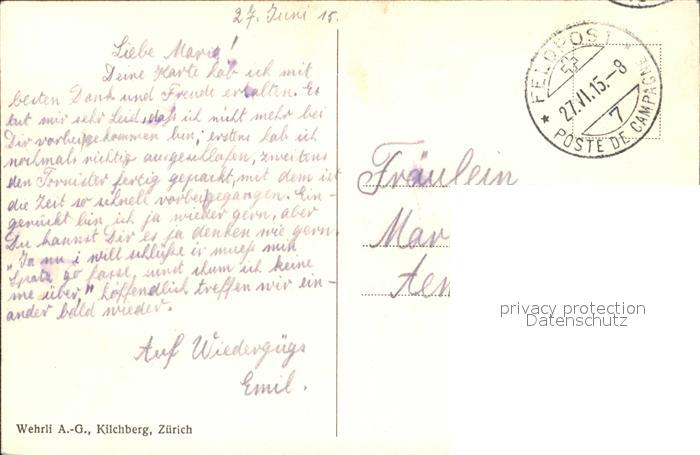 27. Juni 15.
Liebe Marie!
Deine Karte hab ich mit
besten Dank und Freude erhalten. Es
tut mir sehr Leid, daß ich nicht mehr bei
Dir vorbeigekommen bin, erstens hab ich
nochmals richtig ausgeschlafen, zweitens
den Tornister fertig gepackt, mit dem ist
die Zeit so schnell vorbeigegangen. Ein-
gerückt bin ich ja wieder gern, aber
Du kannst Dir es ja denken wie gern.
"Ja nu i will schlüße i muess mis
Spatz go fasse, sunst chum ich keine
me über," höffendlich treffen wir ein-
ander bald wieder.
Auf Wiedergügs
Emil.
Wehrli A.-G., Kilchberg, Zürich
FELDPOST
27.VI.15.-8
7
POSTE DE CAMPAGNE
Fräulein
Mar
privacy protection
Datenschutz